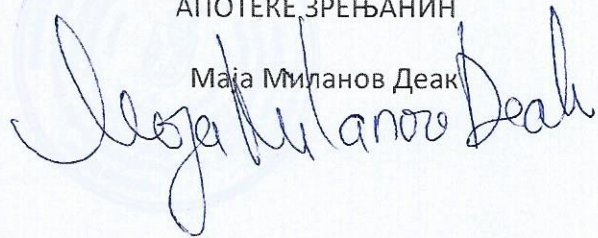 АПОТЕКЕ ЗРЕЊАНИН
Маја Миланов Деак
Maja Milanov Deak